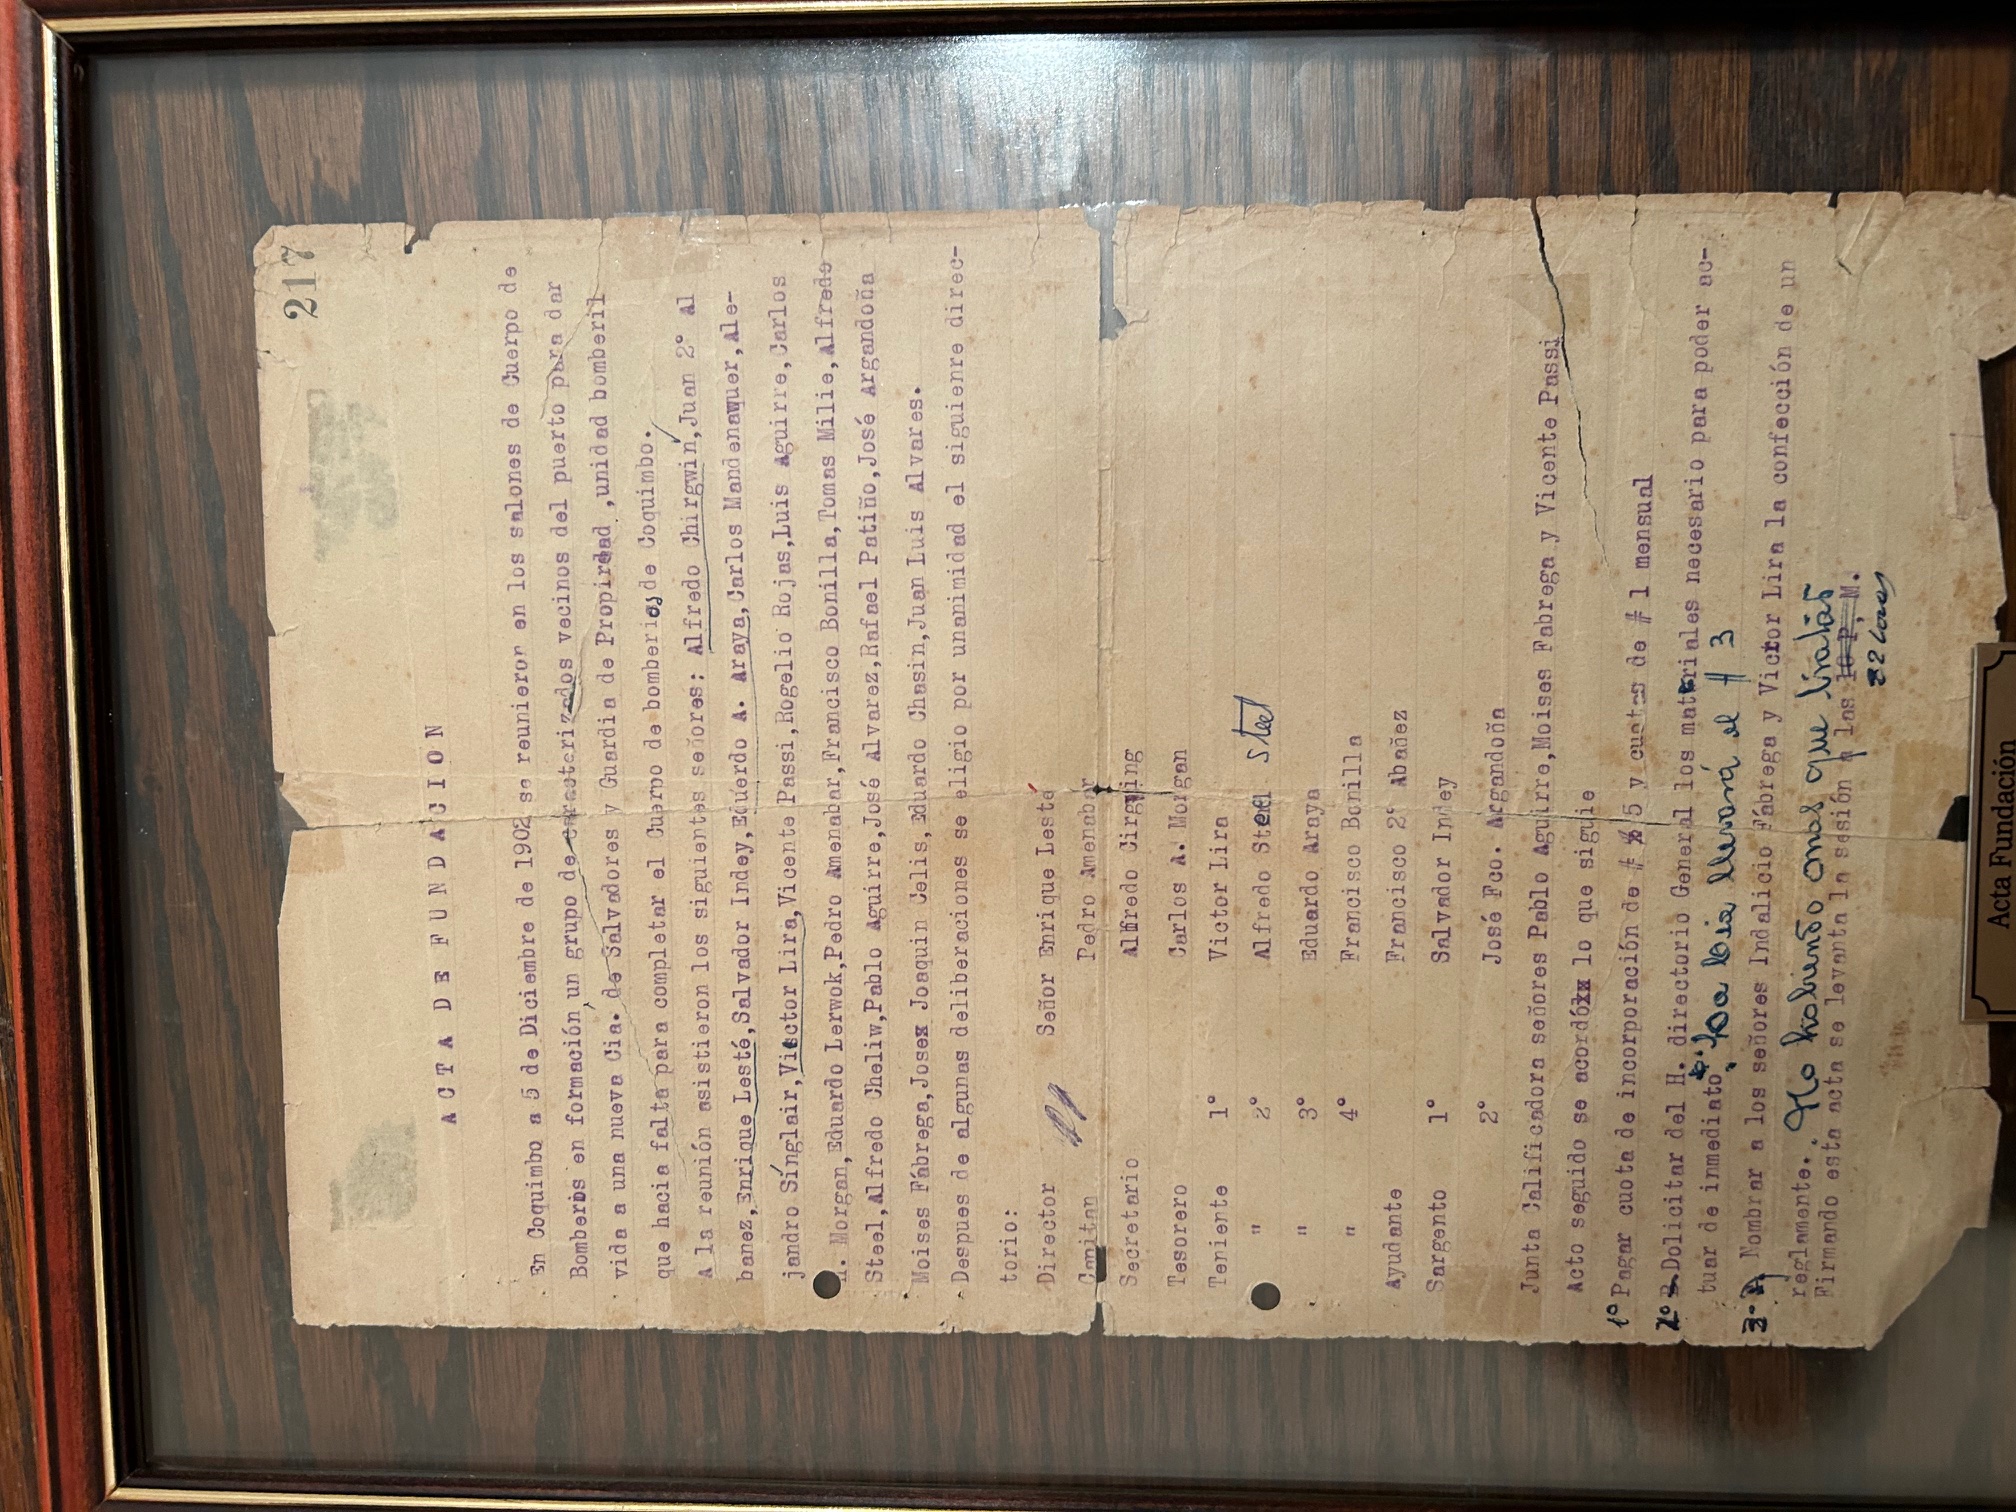 217
ACTA DE FUNDACION
En Coquimbo a 5 de Diciembre de 1902 se reunieron en los salones de Cuerpo de
Bomberos en formación, un grupo de caracterizados vecinos del puerto para dar
vida a una nueva Cia. de Salvadores y Guardia de Propiedad ,unidad bomberil
que hacia falta para completar el Cuerpo de bomberios de Coquimbo.
A la reunión asistieron los siguientes señores: Alfredo Chirgwin,Juan 2° Al
banez,Enrique Lesté,Salvador Indey,Eduerdo A. Araya,Carlos Mandenaquer,Ale-
jandro Sínglair,Victor Lira,Vicente Passi,Rogelio Rojas,Luis Aguirre,Carlos
A. Morgan,Eduardo Lerwok,Pedro Amenabar,Francisco Bonilla,Tomas Milie,Alfredo
Steel,Alfredo Cheliw,Pablo Aguirre,José Alvarez,Rafael Patiño,José Argandoña
Moises Fábrega,Josex Joaquin Celis,Eduardo Chasin,Juan Luis Alvares.
Despues de algunas deliberaciones se eligio por unanimidad el siguienre direc-
torio:
Director Señor Enrique Lesté
Capitan Pedro Amenabar
Secretario Alfredo Cirgwing
Tesorero Carlos A. Morgan
Teniente 1° Victor Lira
" 2° Alfredo Steel Steel
" 3° Eduardo Araya
" 4° Francisco Bonilla
Ayudante Francisco 2° Abañez
Sargento 1° Salvador Indey
2° José Fco. Argandoña
Junta Calificadora señores Pablo Aguirre,Moises Fabrega y Vicente Passi
Acto seguido se acordóxx lo que siguie
1° Pagar cuota de incorporación de # 5 y cuotas de # 1 mensual
2° Dolicitar del H. directorio General los materiales necesario para poder ac-
tuar de inmediato, la Cia llevará el # 3
3° Nombrar a los señores Indalicio Fábrega y Victor Lira la confección de un
reglamente. No habiendo mas que tratar
Firmando esta acta se levanta la sesión a las 10 P,M.
22 horas
Acta Fundación